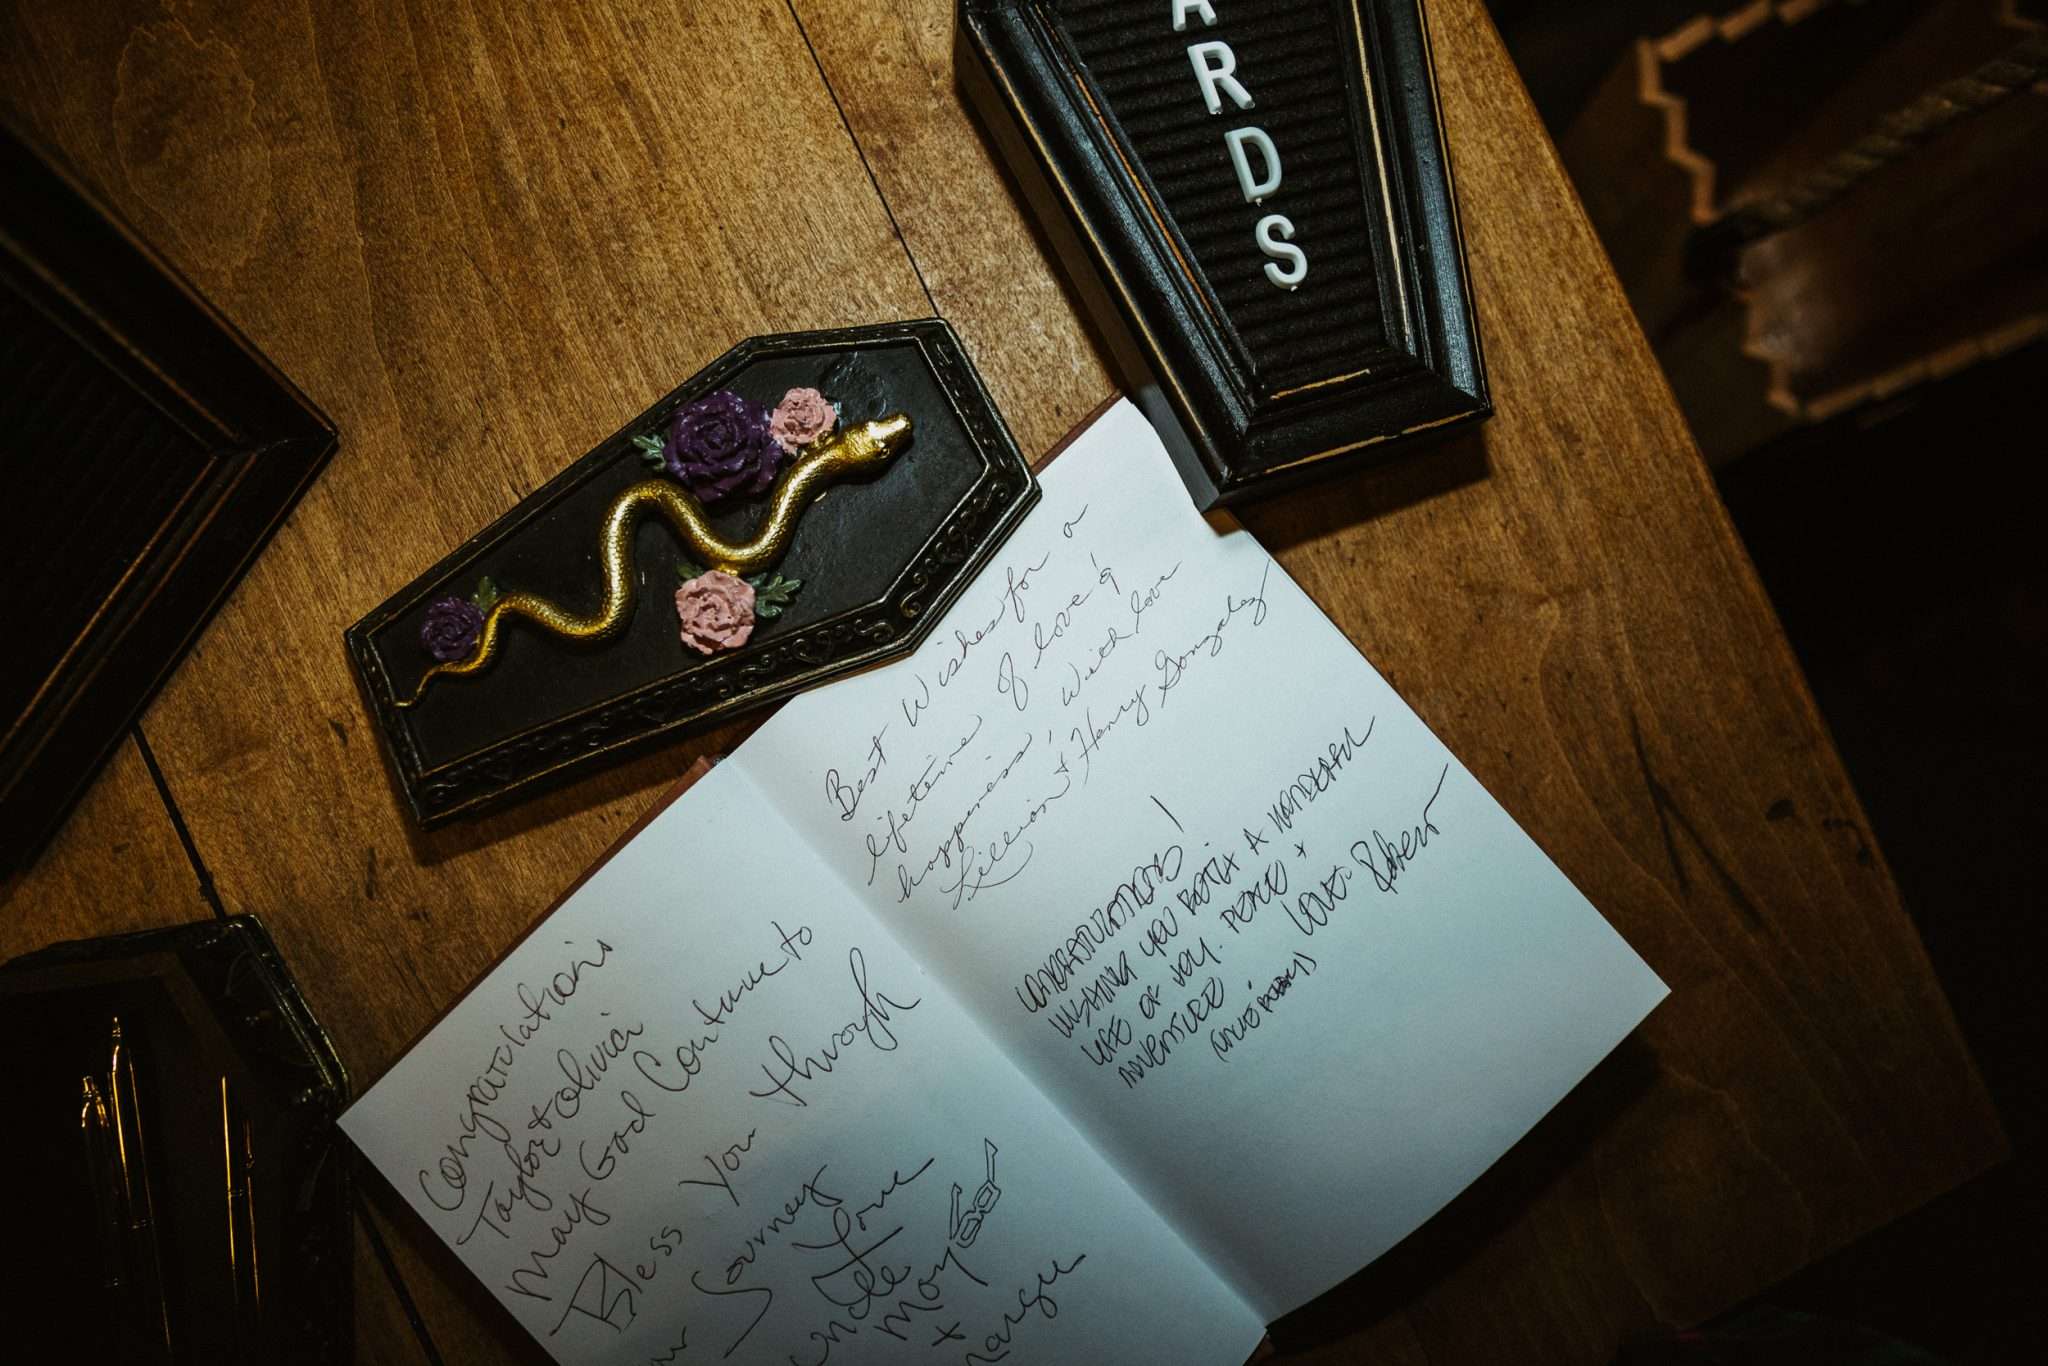 ARDS
Best Wishes for a
lifetime of love &
happiness, With love
Lillian & Henry Gonzalez
CONGRATULATIONS!
WISHING YOU BOTH A WONDERFUL
LIFE OF JOY. PEACE +
ADVENTURE LOVE. Robert
Congratulations
Taylor & Olivia
May God Continue to
Bless You through
Journey
Love
Moy
+
Margie